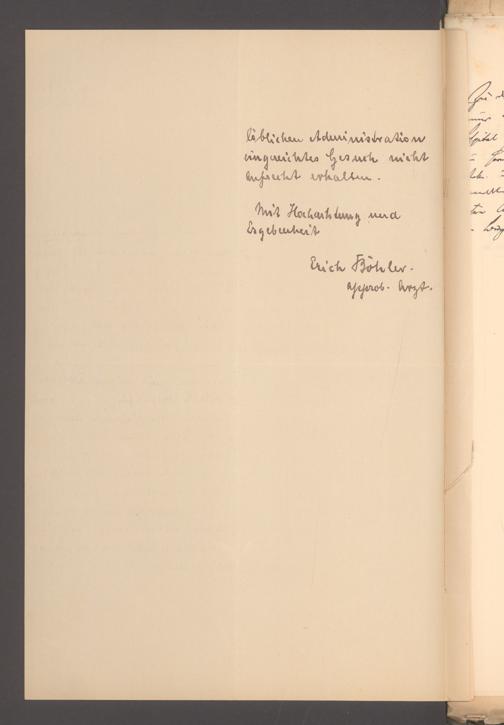 löblichen Administration
eingereichtes Gesuch nicht
aufrecht erhalten.
Mit Hochachtung und
Ergebenheit
Erich Böhler.
approb. Arzt.